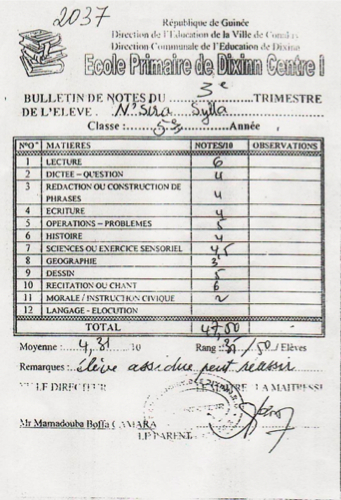 2037
République de Guinée
Direction de l'Education de la Ville de Conakry
Direction Communale de l'Education de Dixinn
Ecole Primaire de Dixinn Centre I
BULLETIN DE NOTES DU 3e TRIMESTRE
DE L'ELEVE : N'Sira Sylla
Classe : 5e Année
N°O MATIERES NOTES/10 OBSERVATIONS
1 LECTURE 6
2 DICTEE – QUESTION 4
3 REDACTION OU CONSTRUCTION DE PHRASES 4
4 ECRITURE 4
5 OPERATIONS – PROBLEMES 5
6 HISTOIRE 4
7 SCIENCES OU EXERCICE SENSORIEL 4,5
8 GEOGRAPHIE 3
9 DESSIN 5
10 RECITATION OU CHANT 6
11 MORALE / INSTRUCTION CIVIQUE 2
12 LANGAGE - ELOCUTION
TOTAL 47,50
Moyenne : 4,31 10 Rang : 35 /50 / Elèves
Remarques : élève assidue peut réussir
LE DIRECTEUR LE MAITRE LA MAITRESSE
Mr Mamadouba Boffa CAMARA
LE PARENT